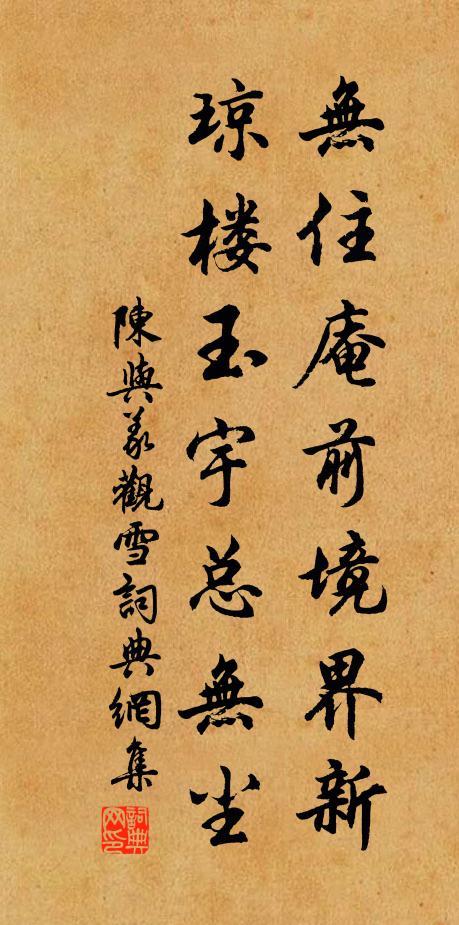 無住庵前境界新
琼楼玉宇总無尘
陳與義觀雪詞典網集
詞典网印